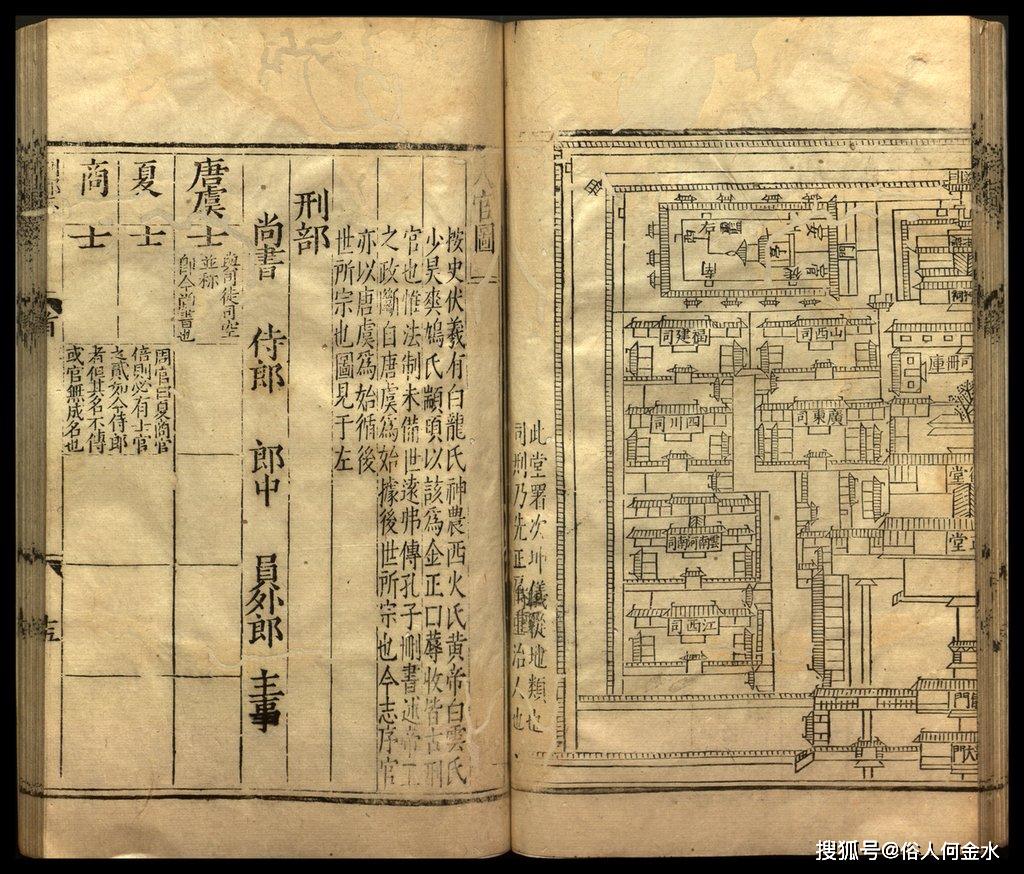 山西司
福建司
司冊庫
廣東司
四川司
堂
雲南河南司
正堂
江西司
門
大門
此堂署次坤儀從地類也
司刑乃先正
治人也
官圖
按史伏羲有白龍氏神農西火氏黃帝白雲氏
少昊爽鳩氏顓頊以該為金正曰蓐收皆古刑
官也惟法制未備世遠弗傳孔子刪書述帝王
之政斷自唐虞為始據後世所宗也今志序官
亦以唐虞為始循後
世所宗也圖見于左
刑部
尚書 侍郎 郎中 員外郎 主事
唐虞 士 與司徒司空
並稱
即今尚書也
夏 士 周官曰夏商官
倍則必有士官
之貳如今侍郎
者但其名不傳
或官無成名也
商 士
搜狐号@俗人何金水